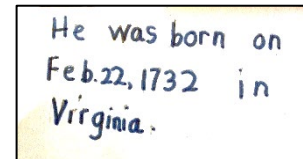 He was born on
Feb.22, 1732 in
Virginia.